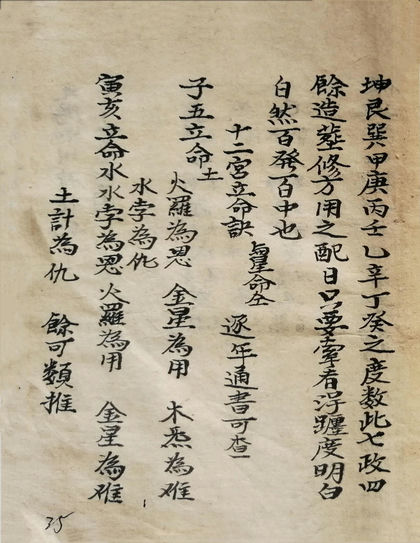 坤艮巽甲庚丙壬乙辛丁癸之度數此七政四
餘造塟修方用之配日只要索看浮躔度明白
自然百發百中也
十二宮立命訣 與星命仝 逐年通書可查
子丑立命土 火羅為恩 金星為用 木炁為难
水孛為仇
寅亥立命水水孛為恩 火羅為用 金星為难
土計為仇 餘可類推
35